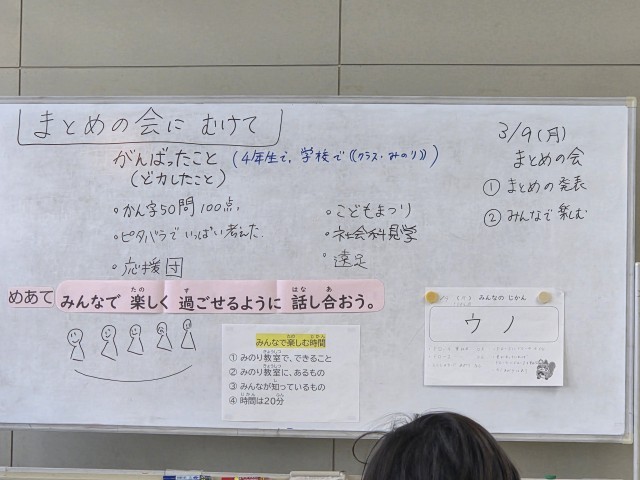 まとめの会に むけて
がんばったこと (4年生で、学校で((クラス・みのり)))
(どりょくしたこと)
・かん字50問100点
・ピタパラでいっぱい考えた
・応援団
・こどもまつり
・社会科見学
・遠足
3/9(月)
まとめの会
① まとめの発表
② みんなで楽しむ
めあて
みんなで 楽しく 過ごせるように 話し合おう。
みんなで楽しむ時間
① みのり教室で、できること
② みのり教室に、あるもの
③ みんなが知っているもの
④ 時間は20分
みんなの じかん
ウノ